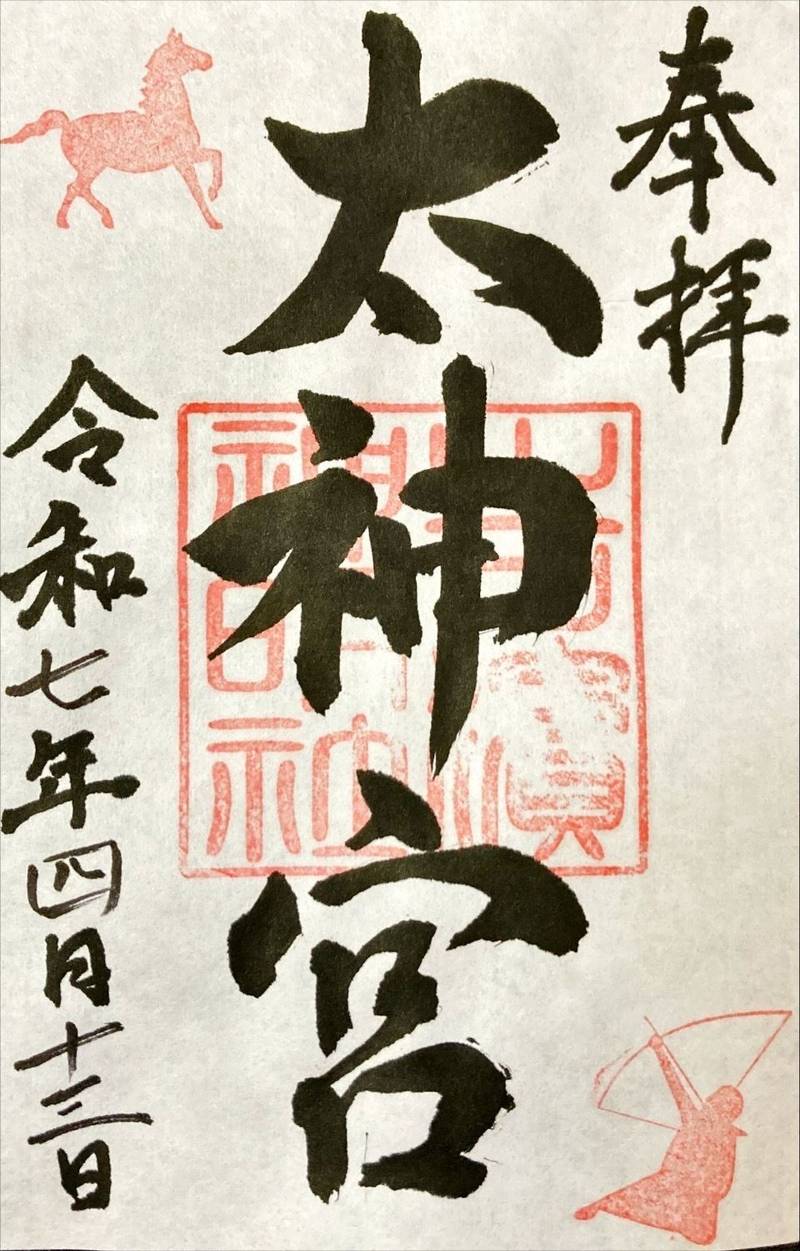 奉拝
太神宮
神明社
令和七年四月十三日